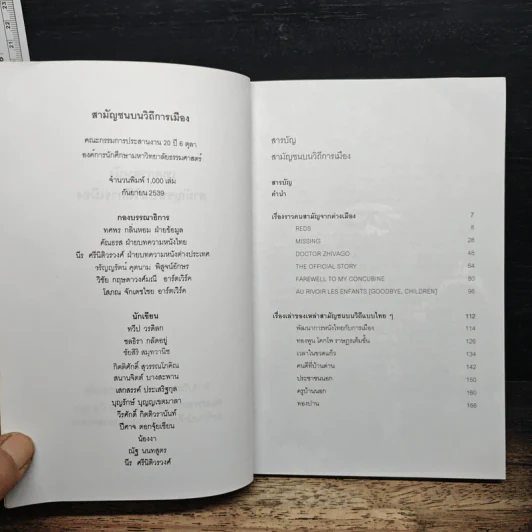 สามัญชนบนวิถีการเมือง
คณะกรรมการประสานงาน 20 ปี 6 ตุลา
องค์การนักศึกษามหาวิทยาลัยธรรมศาสตร์
จำนวนพิมพ์ 1,000 เล่ม
กันยายน 2539
กองบรรณาธิการ
ทศพร กลิ่นหอม ฝ่ายข้อมูล
คัณธรส ฝ่ายบทความหนังไทย
นีร ศรีนิติวรวงศ์ ฝ่ายบทความหนังต่างประเทศ
จรัญญรัตน์ คุตนาม พิสูจน์อักษร
วิชัย กฤษดาวงศ์มณี อาร์ตเวิร์ค
โสภณ จักเดชไชย อาร์ตเวิร์ค
นักเขียน
ทวีป วรดิลก
ชลธิรา กลัดอยู่
ชัยสิริ สมุทวานิช
กิตติศักดิ์ สุวรรณโภคิน
สนานจิตต์ บางสะพาน
เสกสรรค์ ประเสริฐกุล
บุญรักษ์ บุญญเขตมาลา
วีรศักดิ์ กิตติวรานันท์
ปีศาจ ดอกจุ้ยเขียน
น้องงา
ณัฐ นนทสูตร
นีร ศรีนิติวรวงศ์
สารบัญ
สามัญชนบนวิถีการเมือง
สารบัญ
คำนำ
เรื่องราวคนสามัญจากต่างเมือง 7
REDS 8
MISSING 28
DOCTOR ZHIVAGO 48
THE OFFICIAL STORY 64
FAREWELL TO MY CONCUBINE 80
AU RIVOIR LES ENFANTS [GOODBYE, CHILDREN] 96
เรื่องเล่าของเหล่าสามัญชนบนวิถีแบบไทย ๆ 112
พัฒนาการหนังไทยกับการเมือง 114
ทองพูน โคกโพ ราษฎรเต็มขั้น 126
เวลาในขวดแก้ว 134
คนดีที่บ้านด่าน 142
ประชาชนนอก 150
ครูบ้านนอก 160
ทองปาน 168